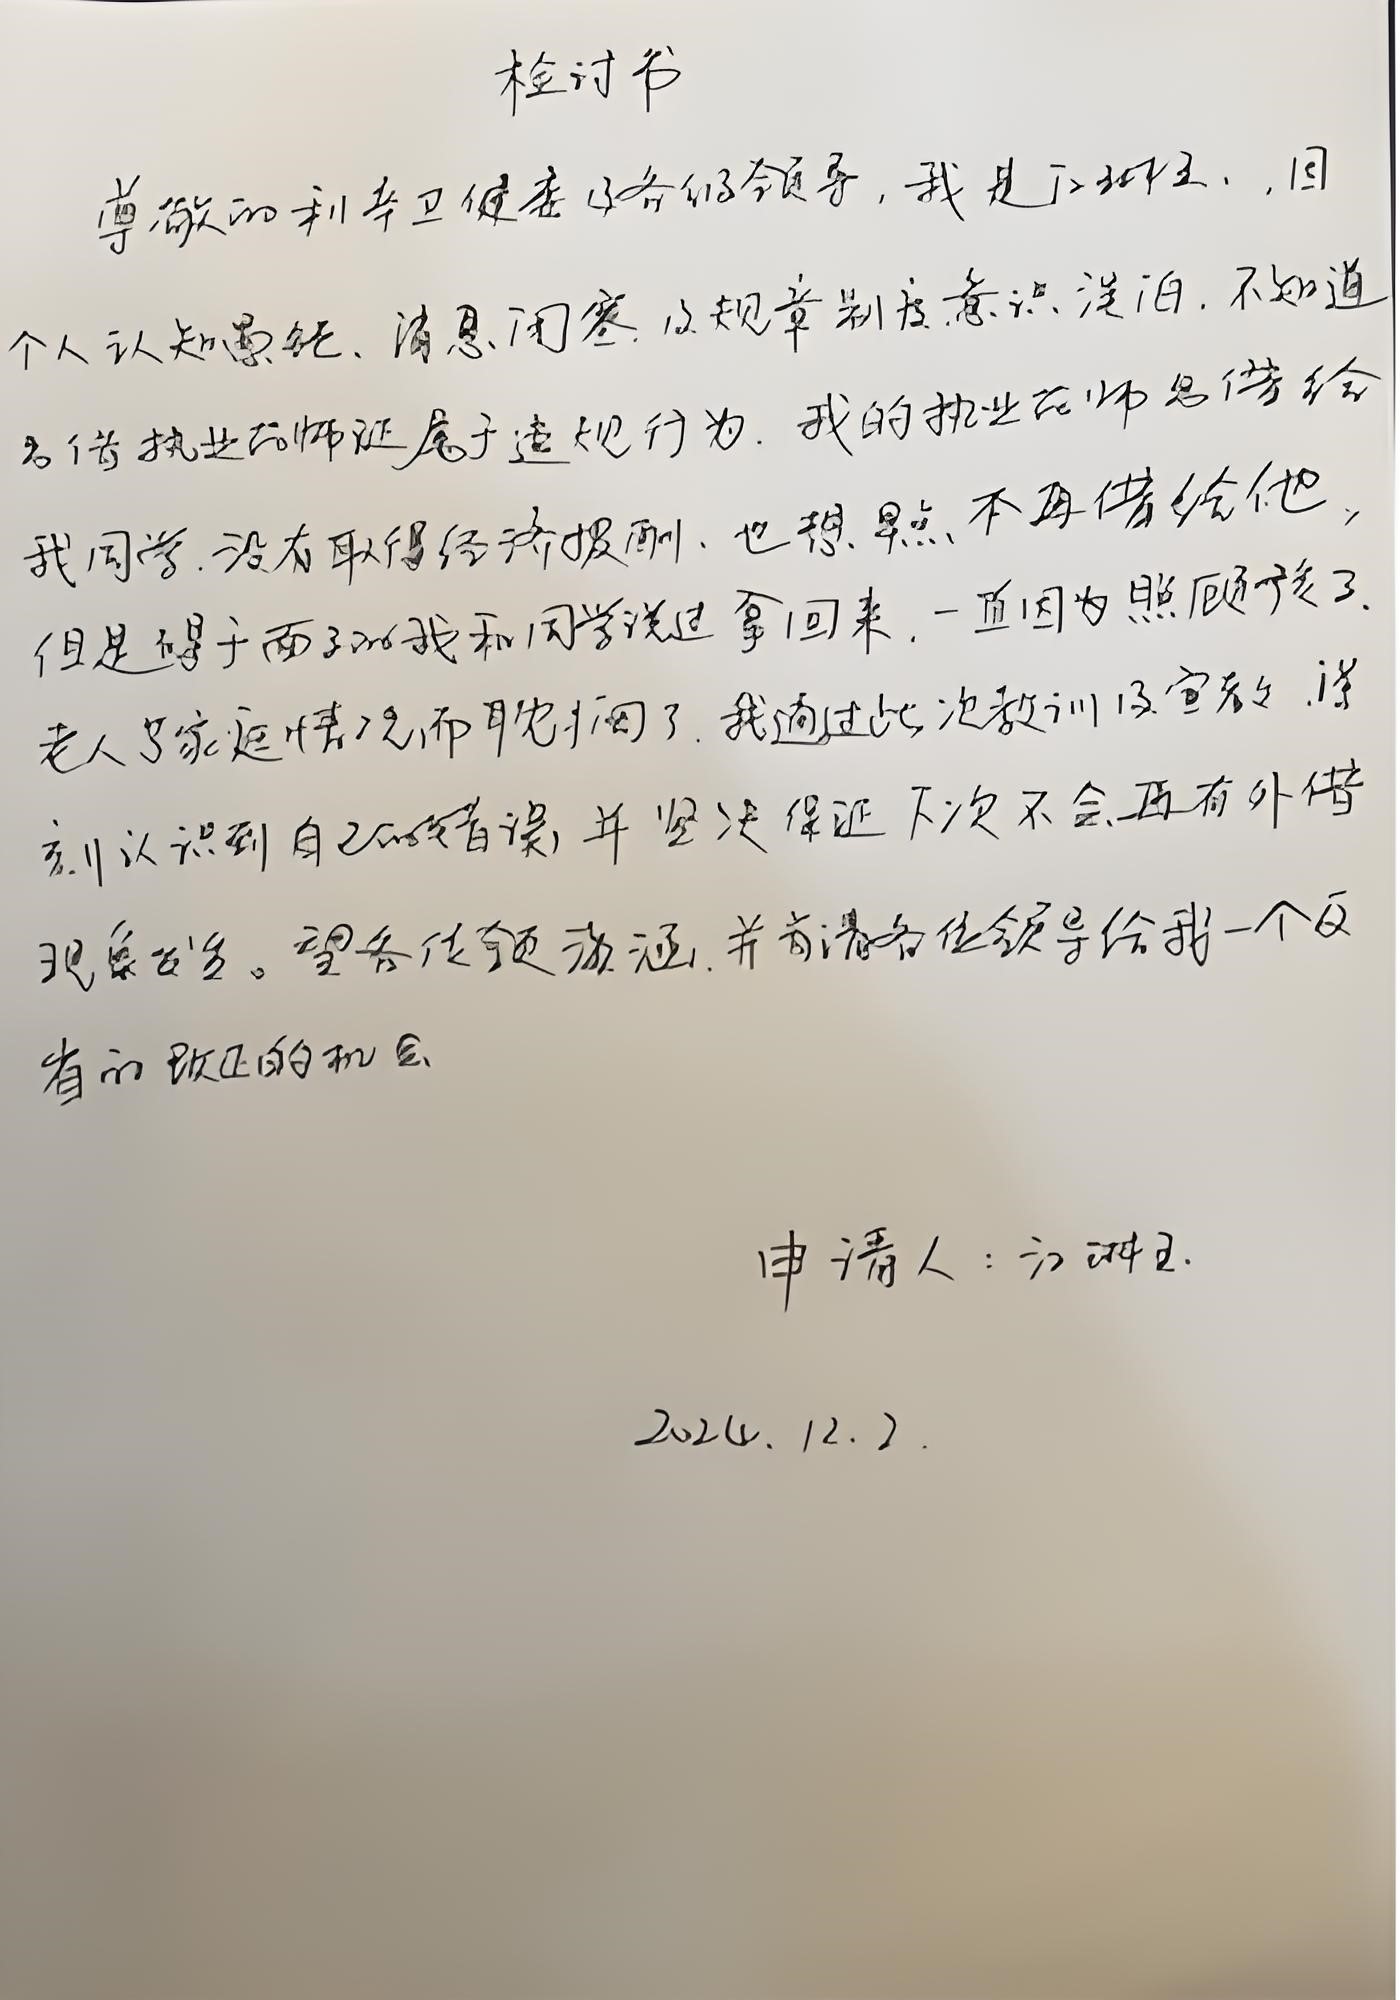 检讨书
尊敬的利辛卫健委及各位领导，我是江琳玉、，因
个人认知薄弱、消息闭塞、及规章制度意识淡泊．不知道
出借执业药师证属于违规行为．我的执业药师出借给
我同学．没有取得经济报酬、也想早点不再借给他，
但是碍于面子的我和同学说过拿回来．一直因为照顾孩子．
老人与家庭情况而耽搁了．我通过此次教训及宣教．深
刻认识到自己的错误，并坚决保证下次不会再有外借
现象发生。望各位领导海涵．并肯请各位领导给我一个反
省和改正的机会
申请人：江琳玉．
2024．12．2．